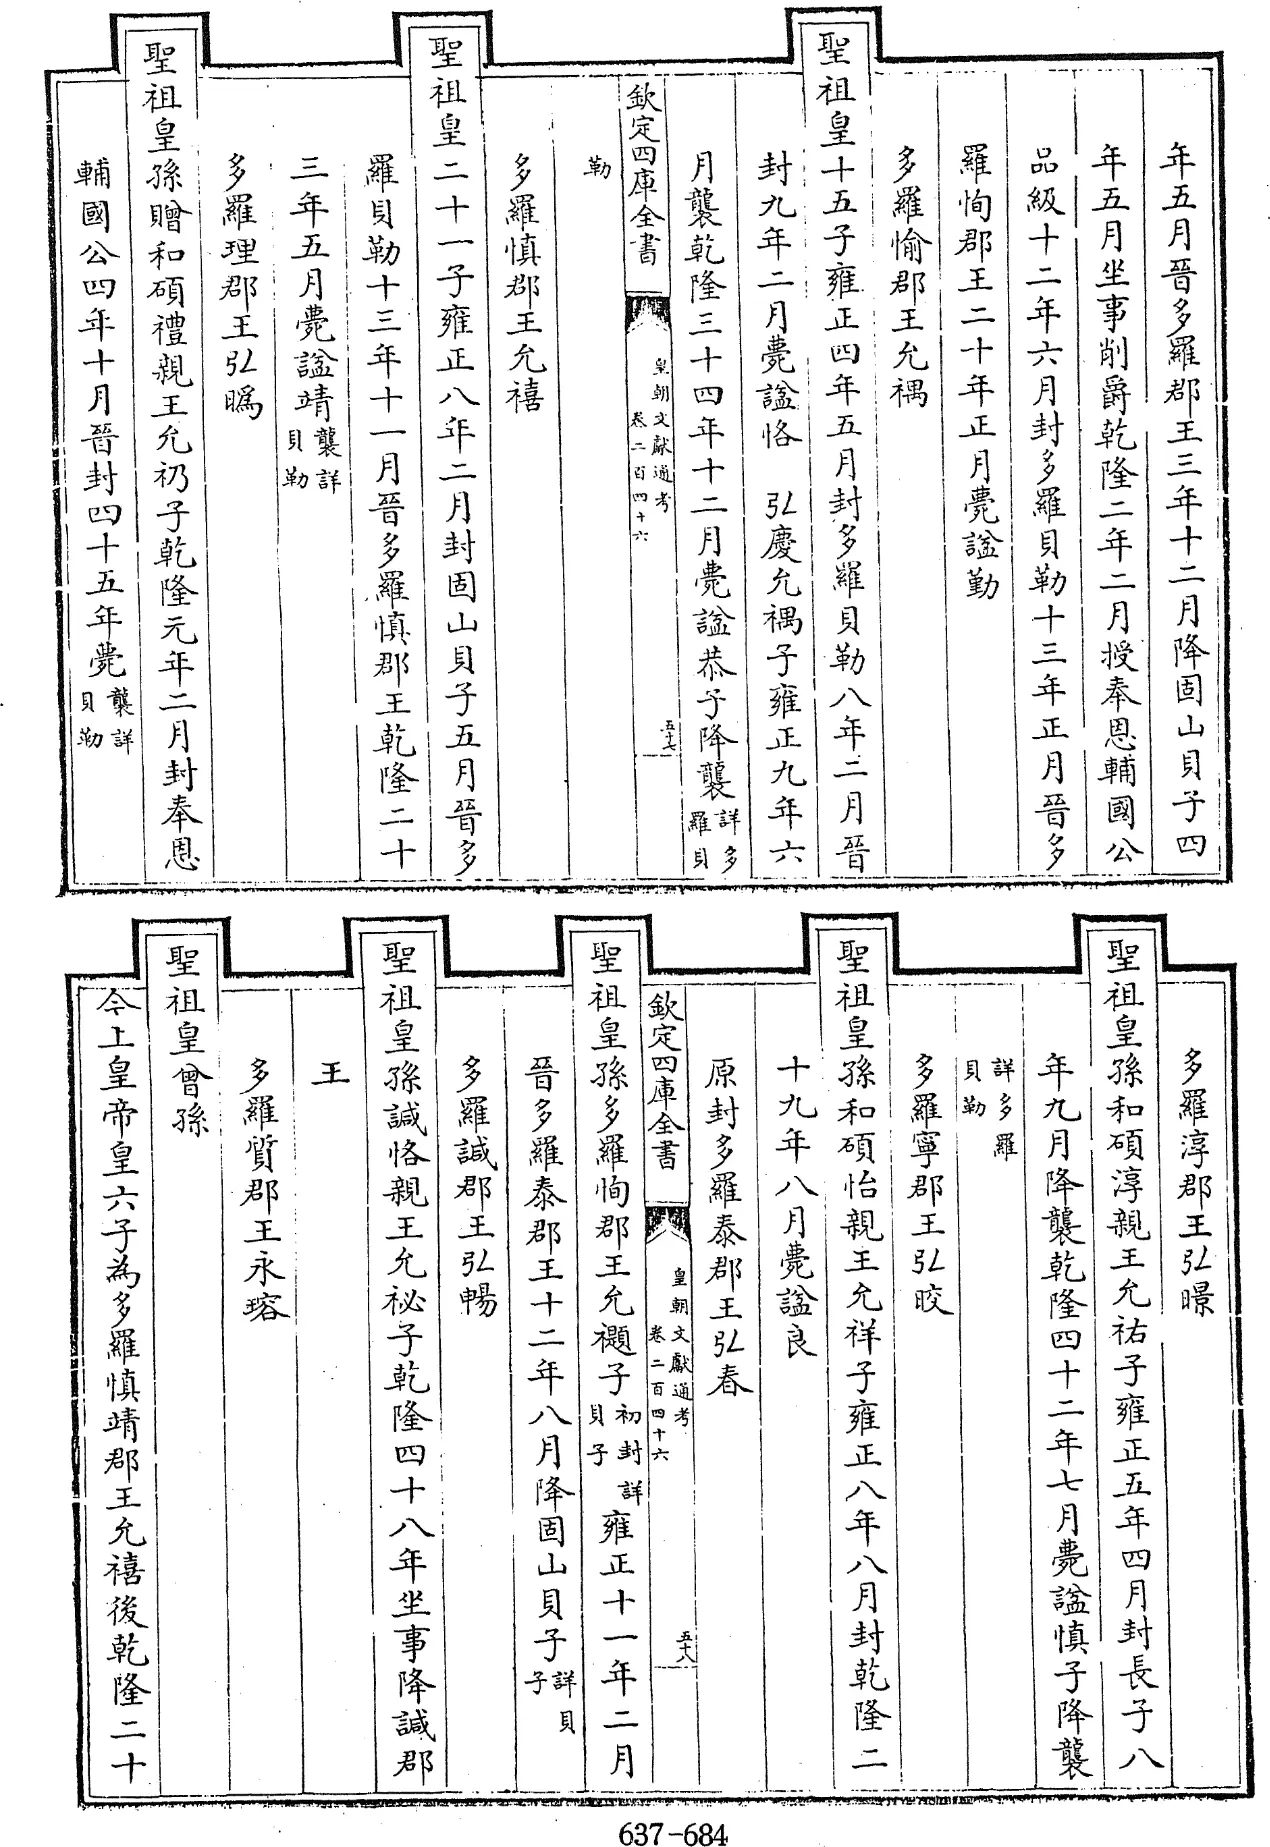 年五月晉多羅郡王三年十二月降固山貝子四
年五月坐事削爵乾隆二年二月授奉恩輔國公
品級十二年六月封多羅貝勒十三年正月晉多
羅恂郡王二十年正月薨諡勤
多羅愉郡王允禑
聖祖皇十五子雍正四年五月封多羅貝勒八年二月晉
封九年二月薨諡恪 弘慶允禑子雍正九年六
月襲乾隆三十四年十二月薨諡恭子降襲詳多羅貝
欽定四庫全書 皇朝文獻通考 卷二百四十六 五十七
勒
多羅慎郡王允禧
聖祖皇二十一子雍正八年二月封固山貝子五月晉多
羅貝勒十三年十一月晉多羅慎郡王乾隆二十
三年五月薨諡靖襲詳貝勒
多羅理郡王弘㬙
聖祖皇孫贈和碩禮親王允礽子乾隆元年二月封奉恩
輔國公四年十月晉封四十五年薨襲詳貝勒
多羅淳郡王弘暻
聖祖皇孫和碩淳親王允祐子雍正五年四月封長子八
年九月降襲乾隆四十二年七月薨諡慎子降襲
詳多羅貝勒
多羅寧郡王弘晈
聖祖皇孫和碩怡親王允祥子雍正八年八月封乾隆二
十九年八月薨諡良
原封多羅泰郡王弘春
欽定四庫全書 皇朝文獻通考 卷二百四十六 五十八
聖祖皇孫多羅恂郡王允禵子初封詳貝子雍正十一年二月
晉多羅泰郡王十二年八月降固山貝子詳貝子
多羅諴郡王弘暢
聖祖皇孫諴恪親王允祕子乾隆四十八年坐事降諴郡
王
多羅質郡王永瑢
聖祖皇曾孫
今上皇帝皇六子為多羅慎靖郡王允禧後乾隆二十
637-684